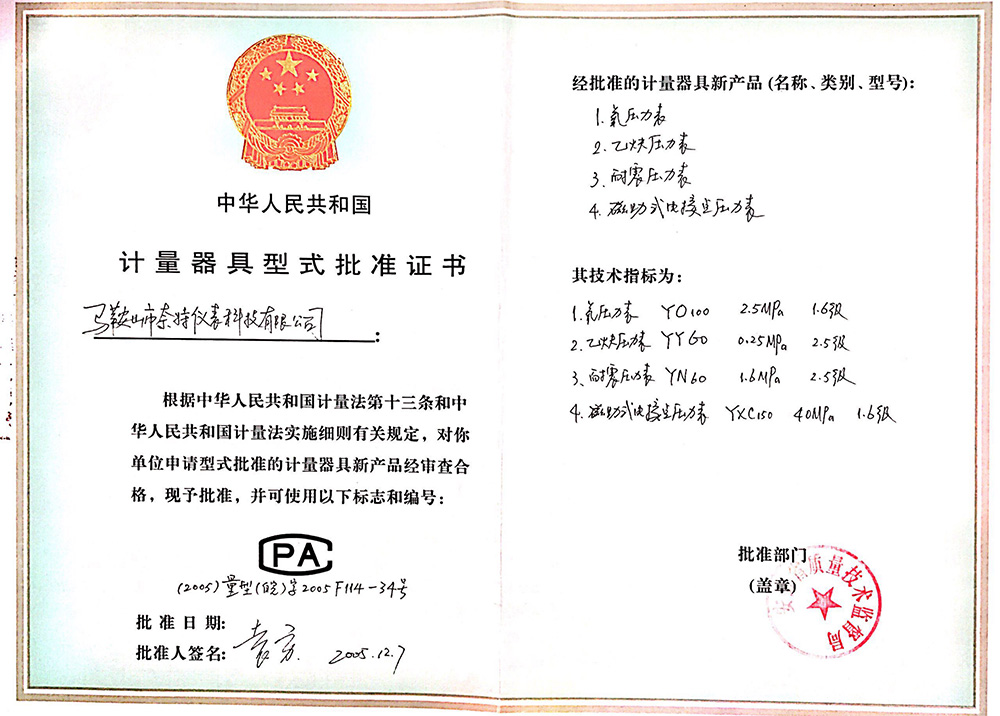 中华人民共和国
计量器具型式批准证书
马鞍山市奈特仪表科技有限公司：
根据中华人民共和国计量法第十三条和中
华人民共和国计量法实施细则有关规定，对你
单位申请型式批准的计量器具新产品经审查合
格，现予批准，并可使用以下标志和编号：
CPA
(2005)量型(皖)字2005F114-34号
批准日期：
批准人签名：
2005.12.7
经批准的计量器具新产品(名称、类别、型号)：
1.氧压力表
2.乙炔压力表
3.耐震压力表
4.磁助式电接点压力表
其技术指标为：
1.氧压力表 YO100 2.5MPa 1.6级
2.乙炔压力表 YY60 0.25MPa 2.5级
3.耐震压力表 YN60 1.6MPa 2.5级
4.磁助式电接点压力表 YXC150 40MPa 1.6级
批准部门
(盖章)
质量技术监督局